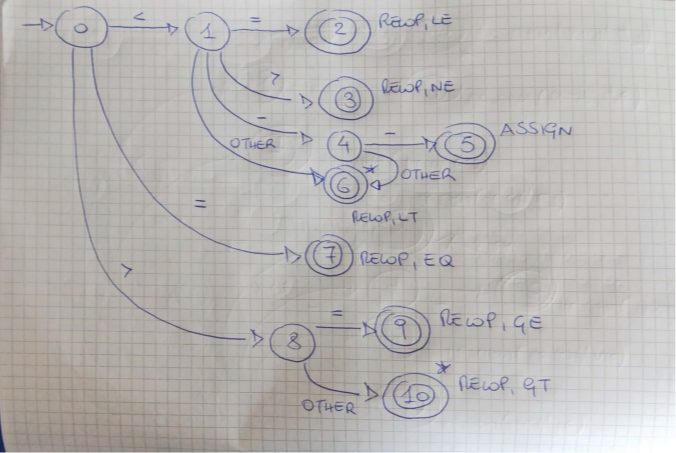 0 < 1 = 2 RELOP, LE
> 3 RELOP, NE
- 4 - 5 ASSIGN
OTHER
6 * OTHER
RELOP, LT
= 7 RELOP, EQ
> 8 = 9 RELOP, GE
OTHER 10 * RELOP, GT